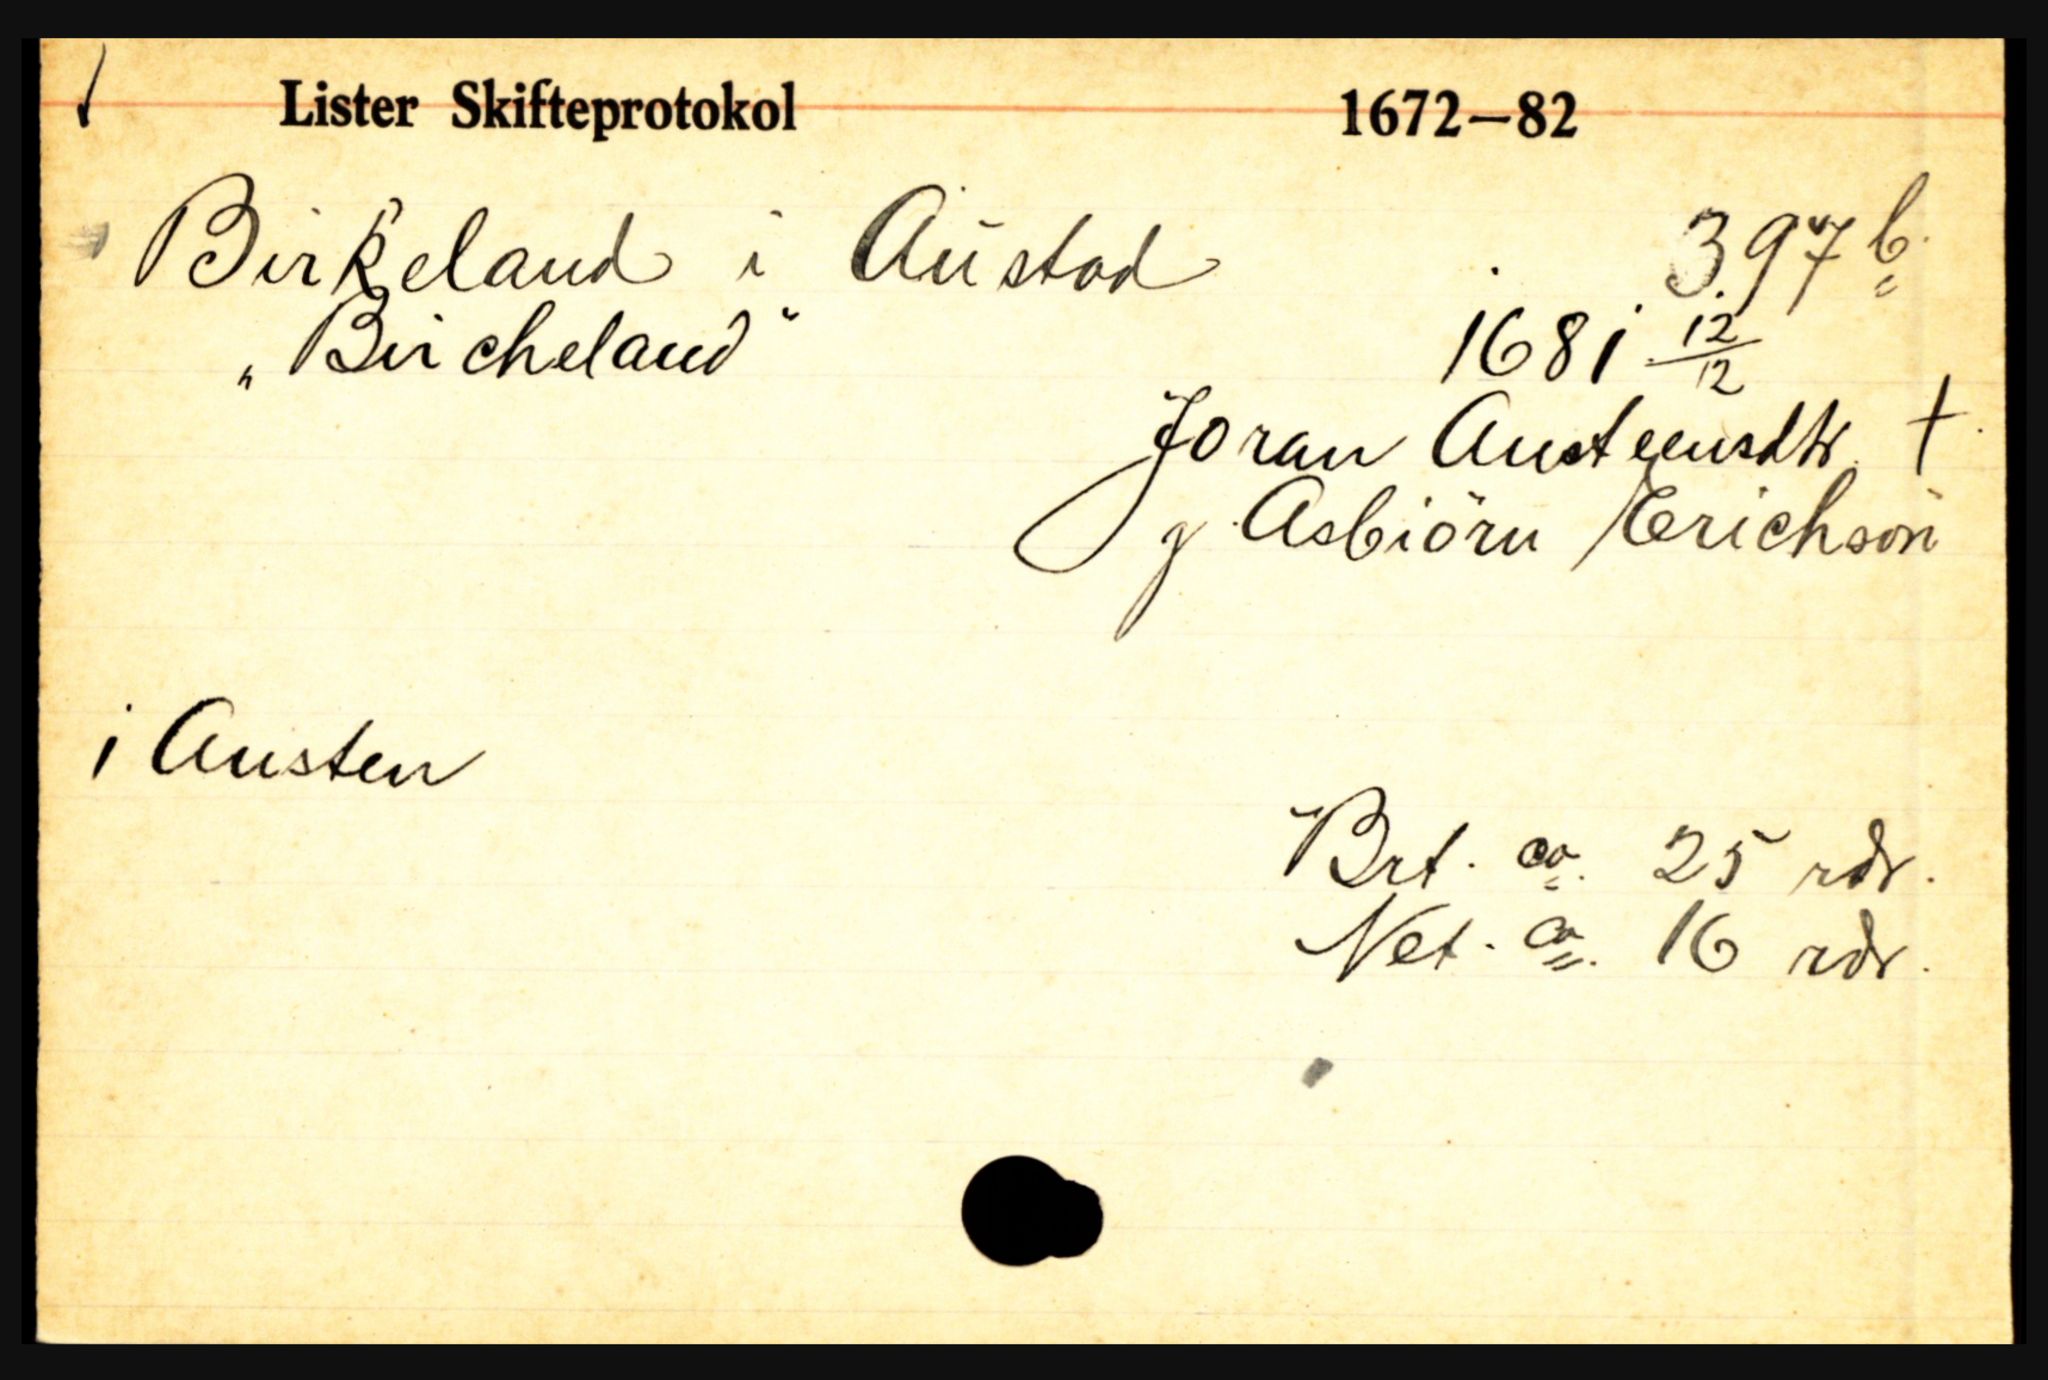 Lister Skifteprotokol 1672—82
Birkeland i Austad 397 b.
„Bircheland" 1681 12/12
Joran Austeensdtr. †
g. Asbiörn Erichsön
i Austen
Brt. ca. 25 rdr.
Net. ca. 16 rdr.